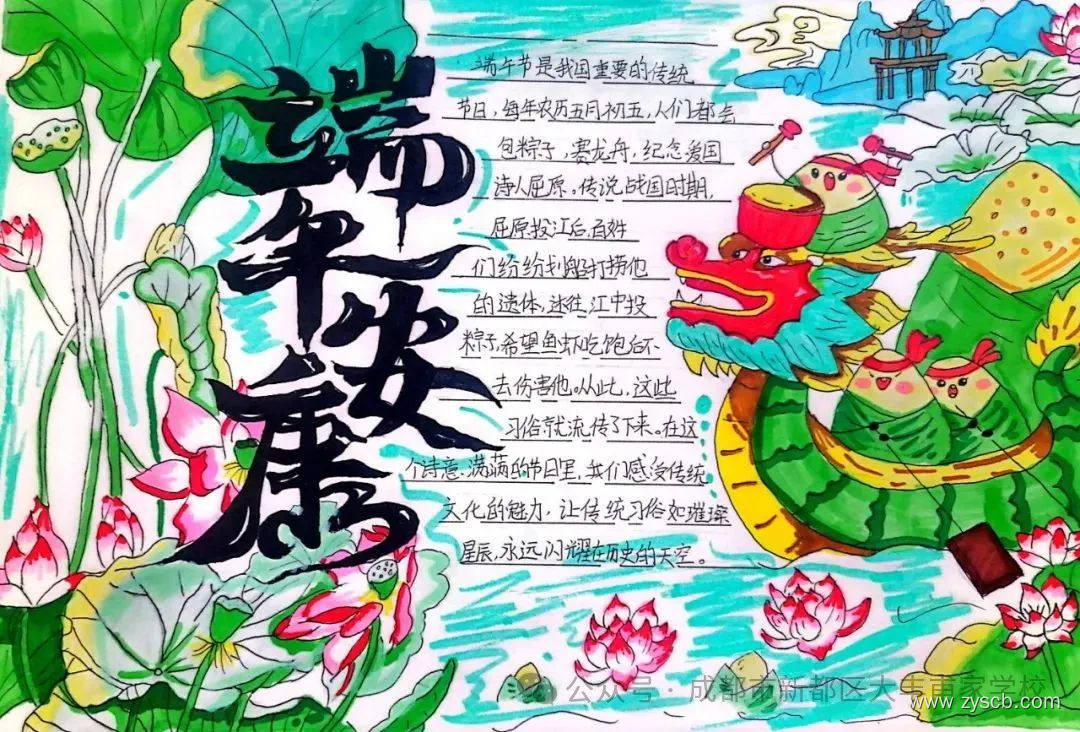 端午安康
端午节是我国重要的传统
节日，每年农历五月初五，人们都会
包粽子，赛龙舟，纪念爱国
诗人屈原。传说战国时期，
屈原投江后，百姓
们纷纷划船打捞他
的遗体，还往江中投
粽子，希望鱼虾吃饱后不
去伤害他。从此，这些
习俗就流传了下来。在这
个诗意满满的节日里，我们感受传统
文化的魅力，让传统习俗如璀璨
星辰，永远闪耀在历史的天空。
公众号·成都市新都区大丰甫家学校
www.zyscb.com